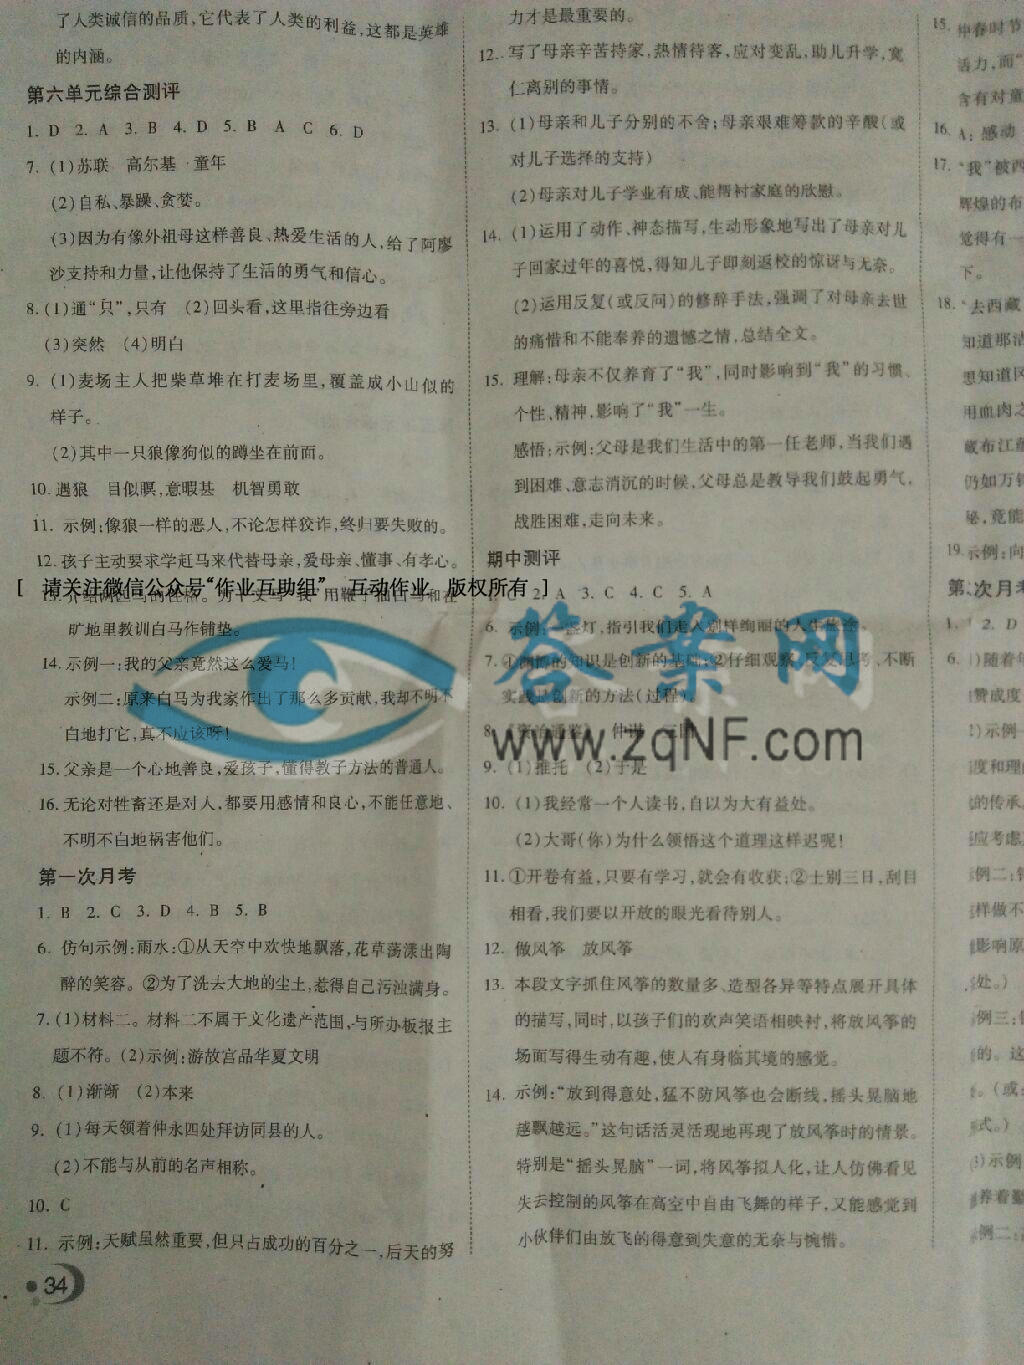 了人类诚信的品质,它代表了人类的利益,这都是英雄
的内涵。
第六单元综合测评
1. D 2. A 3. B 4. D 5. B A C 6. D
7. (1)苏联 高尔基 童年
(2)自私、暴躁、贪婪。
(3)因为有像外祖母这样善良、热爱生活的人,给了阿廖
沙支持和力量,让他保持了生活的勇气和信心。
8. (1)通“只”,只有 (2)回头看,这里指往旁边看
(3)突然 (4)明白
9. (1)麦场主人把柴草堆在打麦场里,覆盖成小山似的
样子。
(2)其中一只狼像狗似的蹲坐在前面。
10. 遇狼 目似瞑,意暇甚 机智勇敢
11. 示例:像狼一样的恶人,不论怎样狡诈,终归要失败的。
12. 孩子主动要求学赶马来代替母亲,爱母亲、懂事、有孝心。
[ 请关注微信公众号“作业互助组” 互动作业 版权所有 ]
旷地里教训白马作铺垫。
14. 示例一:我的父亲竟然这么爱马!
示例二:原来白马为我家作出了那么多贡献,我却不明不
白地打它,真不应该呀!
15. 父亲是一个心地善良,爱孩子,懂得教子方法的普通人。
16. 无论对牲畜还是对人,都要用感情和良心,不能任意地、
不明不白地祸害他们。
第一次月考
1. B 2. C 3. D 4. B 5. B
6. 仿句示例:雨水:①从天空中欢快地飘落,花草荡漾出陶
醉的笑容。②为了洗去大地的尘土,惹得自己污浊满身。
7. (1)材料二。材料二不属于文化遗产范围,与所办板报主
题不符。(2)示例:游故宫品华夏文明
8. (1)渐渐 (2)本来
9. (1)每天领着仲永四处拜访同县的人。
(2)不能与从前的名声相称。
10. C
11. 示例:天赋虽然重要,但只占成功的百分之一,后天的努
34
力才是最重要的。
12. 写了母亲辛苦持家,热情待客,应对变乱,助儿升学,宽
仁离别的事情。
13. (1)母亲和儿子分别的不舍;母亲艰难筹款的辛酸(或
对儿子选择的支持)
(2)母亲对儿子学业有成、能帮衬家庭的欣慰。
14. (1)运用了动作、神态描写,生动形象地写出了母亲对儿
子回家过年的喜悦,得知儿子即刻返校的惊讶与无奈。
(2)运用反复(或反问)的修辞手法,强调了对母亲去世
的痛惜和不能奉养的遗憾之情,总结全文。
15. 理解:母亲不仅养育了“我”,同时影响到“我”的习惯、
个性、精神,影响了“我”一生。
感悟:示例:父母是我们生活中的第一任老师,当我们遇
到困难、意志消沉的时候,父母总是教导我们鼓起勇气,
战胜困难,走向未来。
期中测评
C 5. A
6. 示例:一盏灯,指引我们走入别样绚丽的人生旅途。
7. 的知识是创新的基础;②仔细观察 不断
实践是创新的方法(过程)。
8. 《资治通鉴》 仲谋 三国
答案网
www.zqNF.com
9. (1)推托 (2)于是
10. (1)我经常一个人读书,自以为大有益处。
(2)大哥(你)为什么领悟这个道理这样迟呢!
11. ①开卷有益,只要有学习,就会有收获;②士别三日,刮目
相看,我们要以开放的眼光看待别人。
12. 做风筝 放风筝
13. 本段文字抓住风筝的数量多、造型各异等特点展开具体
的描写,同时,以孩子们的欢声笑语相映衬,将放风筝的
场面写得生动有趣,使人有身临其境的感觉。
14. 示例:“放到得意处,猛不防风筝也会断线,摇头晃脑地
越飘越远。”这句话活灵活现地再现了放风筝时的情景。
特别是“摇头晃脑”一词,将风筝拟人化,让人仿佛看见
失去控制的风筝在高空中自由飞舞的样子,又能感觉到
小伙伴们由放飞的得意到失意的无奈与惋惜。
15. 仲春时节
活力,而“
含有对童
16. A:感动
17. “我”被西
辉煌的布
觉得有一
下。
18. “去西藏
知道那洁
想知道冈
用血肉之
藏布江章
仍如万钧
秘,竟能
19. 示例:向
第二次月考
2. D
随着年
赞成度
示例一
度和理
的传承
应考虑
例二:
样做不
影响原
处。)
例三:
的。这
。(或:
式。)
示例
养着
例二: